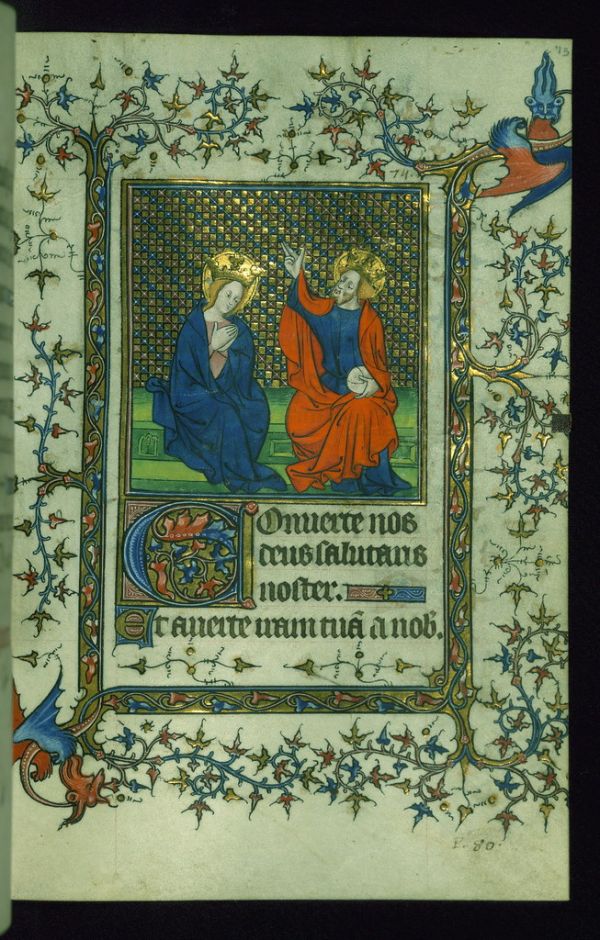 73
74.
Conuerte nos
deus salutaris
noster.
Et auerte iram tuã a nob̉.
P. 80.